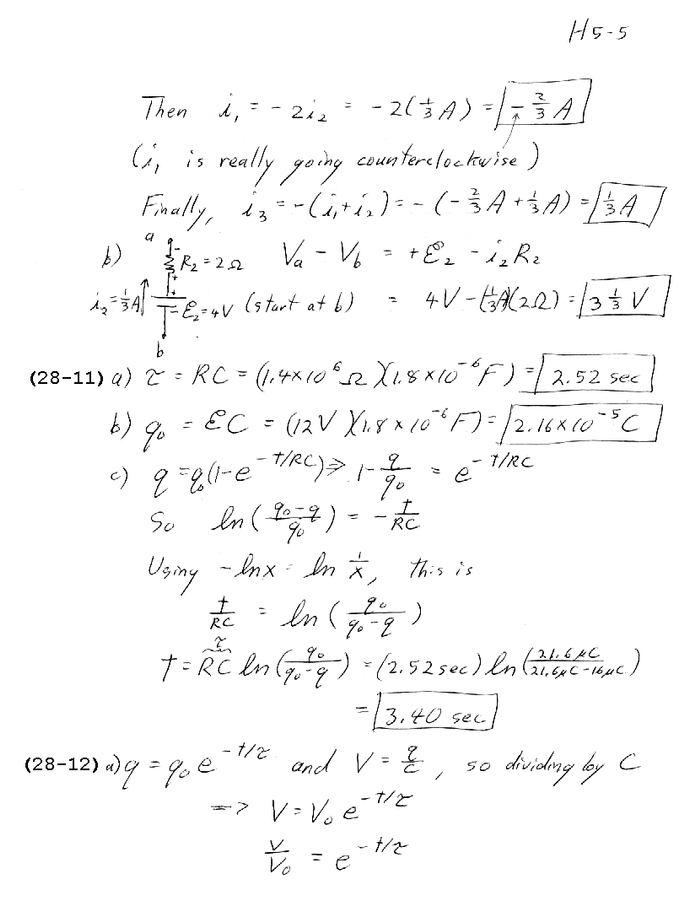 H5-5
Then i₁ = -2i₂ = -2(⅓A) = -⅔A
(i₁ is really going counterclockwise)
Finally, i₃ = -(i₁+i₂) = -(-⅔A + ⅓A) = ⅓A
b) a - R₂ = 2Ω + Vₐ - V_b = +ℰ₂ - i₂R₂
i₂ = ⅓A + - ℰ₂ = 4V (start at b) = 4V - (⅓A)(2Ω) = 3⅓ V
b
(28-11) a) τ = RC = (1.4×10⁶Ω)(1.8×10⁻⁶F) = 2.52 sec
b) q₀ = ℰC = (12V)(1.8×10⁻⁶F) = 2.16×10⁻⁵C
c) q = q₀(1-e^{-t/RC}) ⇒ 1 - q/q₀ = e^{-t/RC}
So ln((q₀-q)/q₀) = -t/RC
Using -lnx = ln 1/x, this is
t/RC = ln(q₀/(q₀-q))
τ
t = RC ln(q₀/(q₀-q)) = (2.52sec) ln(21.6μC/(21.6μC-16μC))
= 3.40 sec
(28-12) a) q = q₀e^{-t/τ} and V = q/C, so dividing by C
=> V = V₀e^{-t/τ}
V/V₀ = e^{-t/τ}